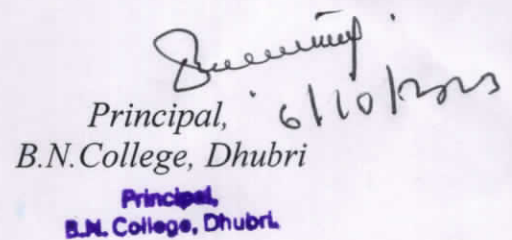 6/10/2023
Principal,
B.N.College, Dhubri
Principal,
B.N. College, Dhubri.